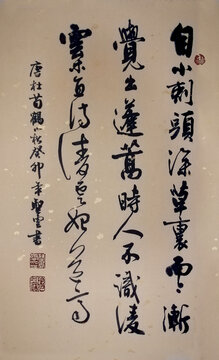 自小刺頭深草裏而今漸
覺出蓬蒿時人不識凌
雲木直待凌雲始道高
唐杜荀鶴小松癸卯年雲書